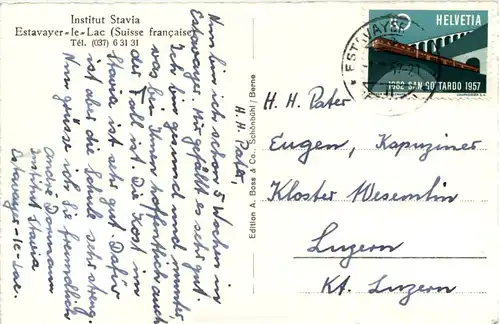 Institut Stavia
Estavayer-le-Lac (Suisse française)
Tél. (037) 6 31 31
H. H. Pater,
Nun bin ich schon 5 Wochen in
Estavayer. Mir gefällt es sehr gut.
Ich bin gesund und munter,
was bei Ihnen hoffentlich auch
der Fall ist. Die Kost im
Stavia ist sehr gut. Dafür
ist aber die Schule sehr streng.
Nun grüsse ich Sie freundlich
André Dommann
Institut Stavia
Estavayer-le-Lac.
Edition A. Boss & Co., Schönbühl / Berne
ESTAVAYER
HELVETIA
1882 SAN GOTTARDO 1957
H. H. Pater
Eugen, Kapuziner
Kloster Wesemlin
Luzern
Kt. Luzern